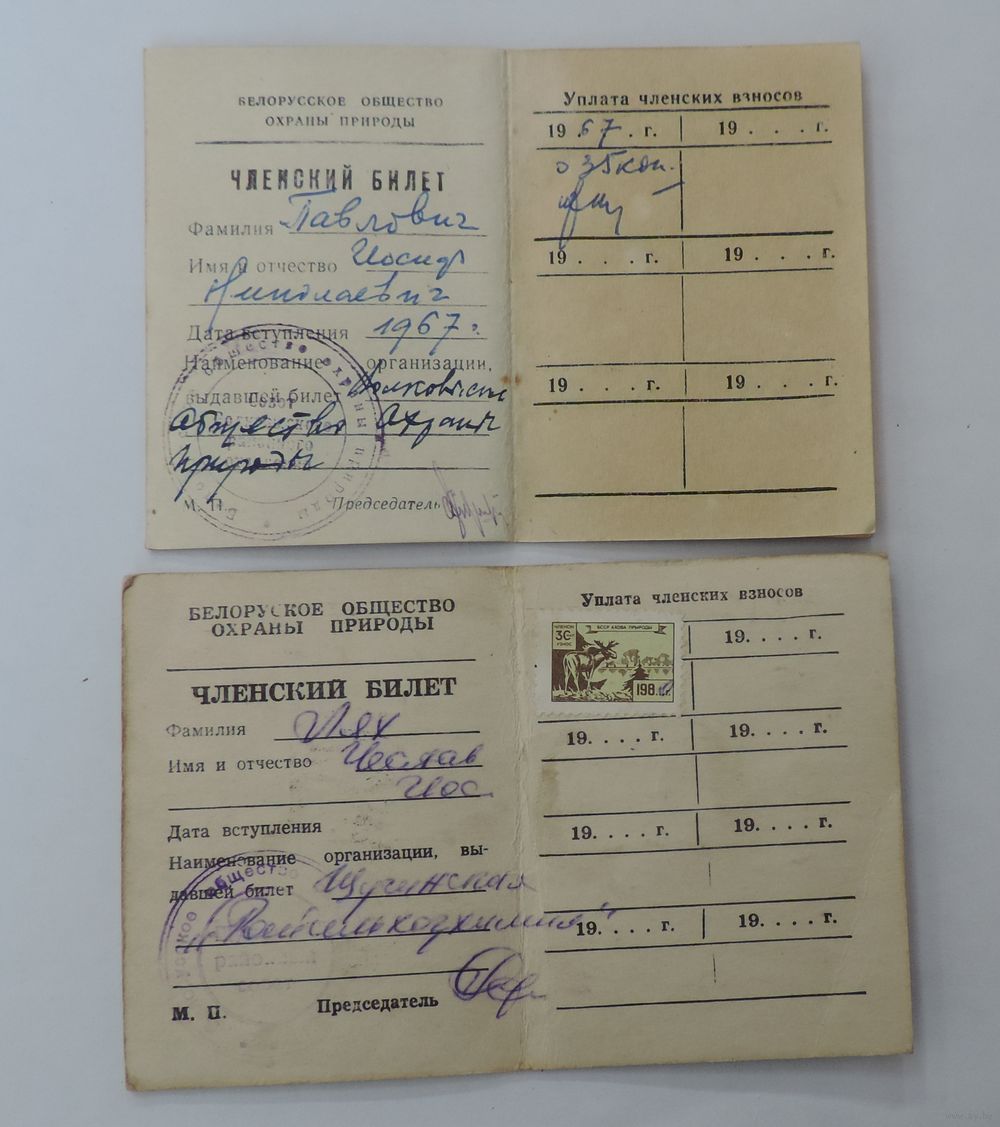 БЕЛОРУССКОЕ ОБЩЕСТВО
ОХРАНЫ ПРИРОДЫ
ЧЛЕНСКИЙ БИЛЕТ
Фамилия Павлович
Имя и отчество Иосиф
Николаевич
Дата вступления 1967 г.
Наименование организации,
выдавшей билет Волковыское
Общество Охраны
природы
М. П. Председатель
Уплата членских взносов
19 67 . г. 19 . . . г.
35 коп.
19 . . . . г. 19 . . . г.
19 . . . . г. 19 . . . г.
БЕЛОРУССКОЕ ОБЩЕСТВО
ОХРАНЫ ПРИРОДЫ
ЧЛЕНСКИЙ БИЛЕТ
Фамилия Лях
Имя и отчество Чеслав
Иос
Дата вступления
Наименование организации, вы-
давшей билет Щучинская
М. П. Председатель
Уплата членских взносов
ЧЛЕНСКІ
30
УЗНОС
БССР АХОВА ПРЫРОДЫ
198
19. . . . г.
19. . . . г. 19. . . . г.
19. . . . г. 19. . . . г.
19. . . . г. 19. . . . г.